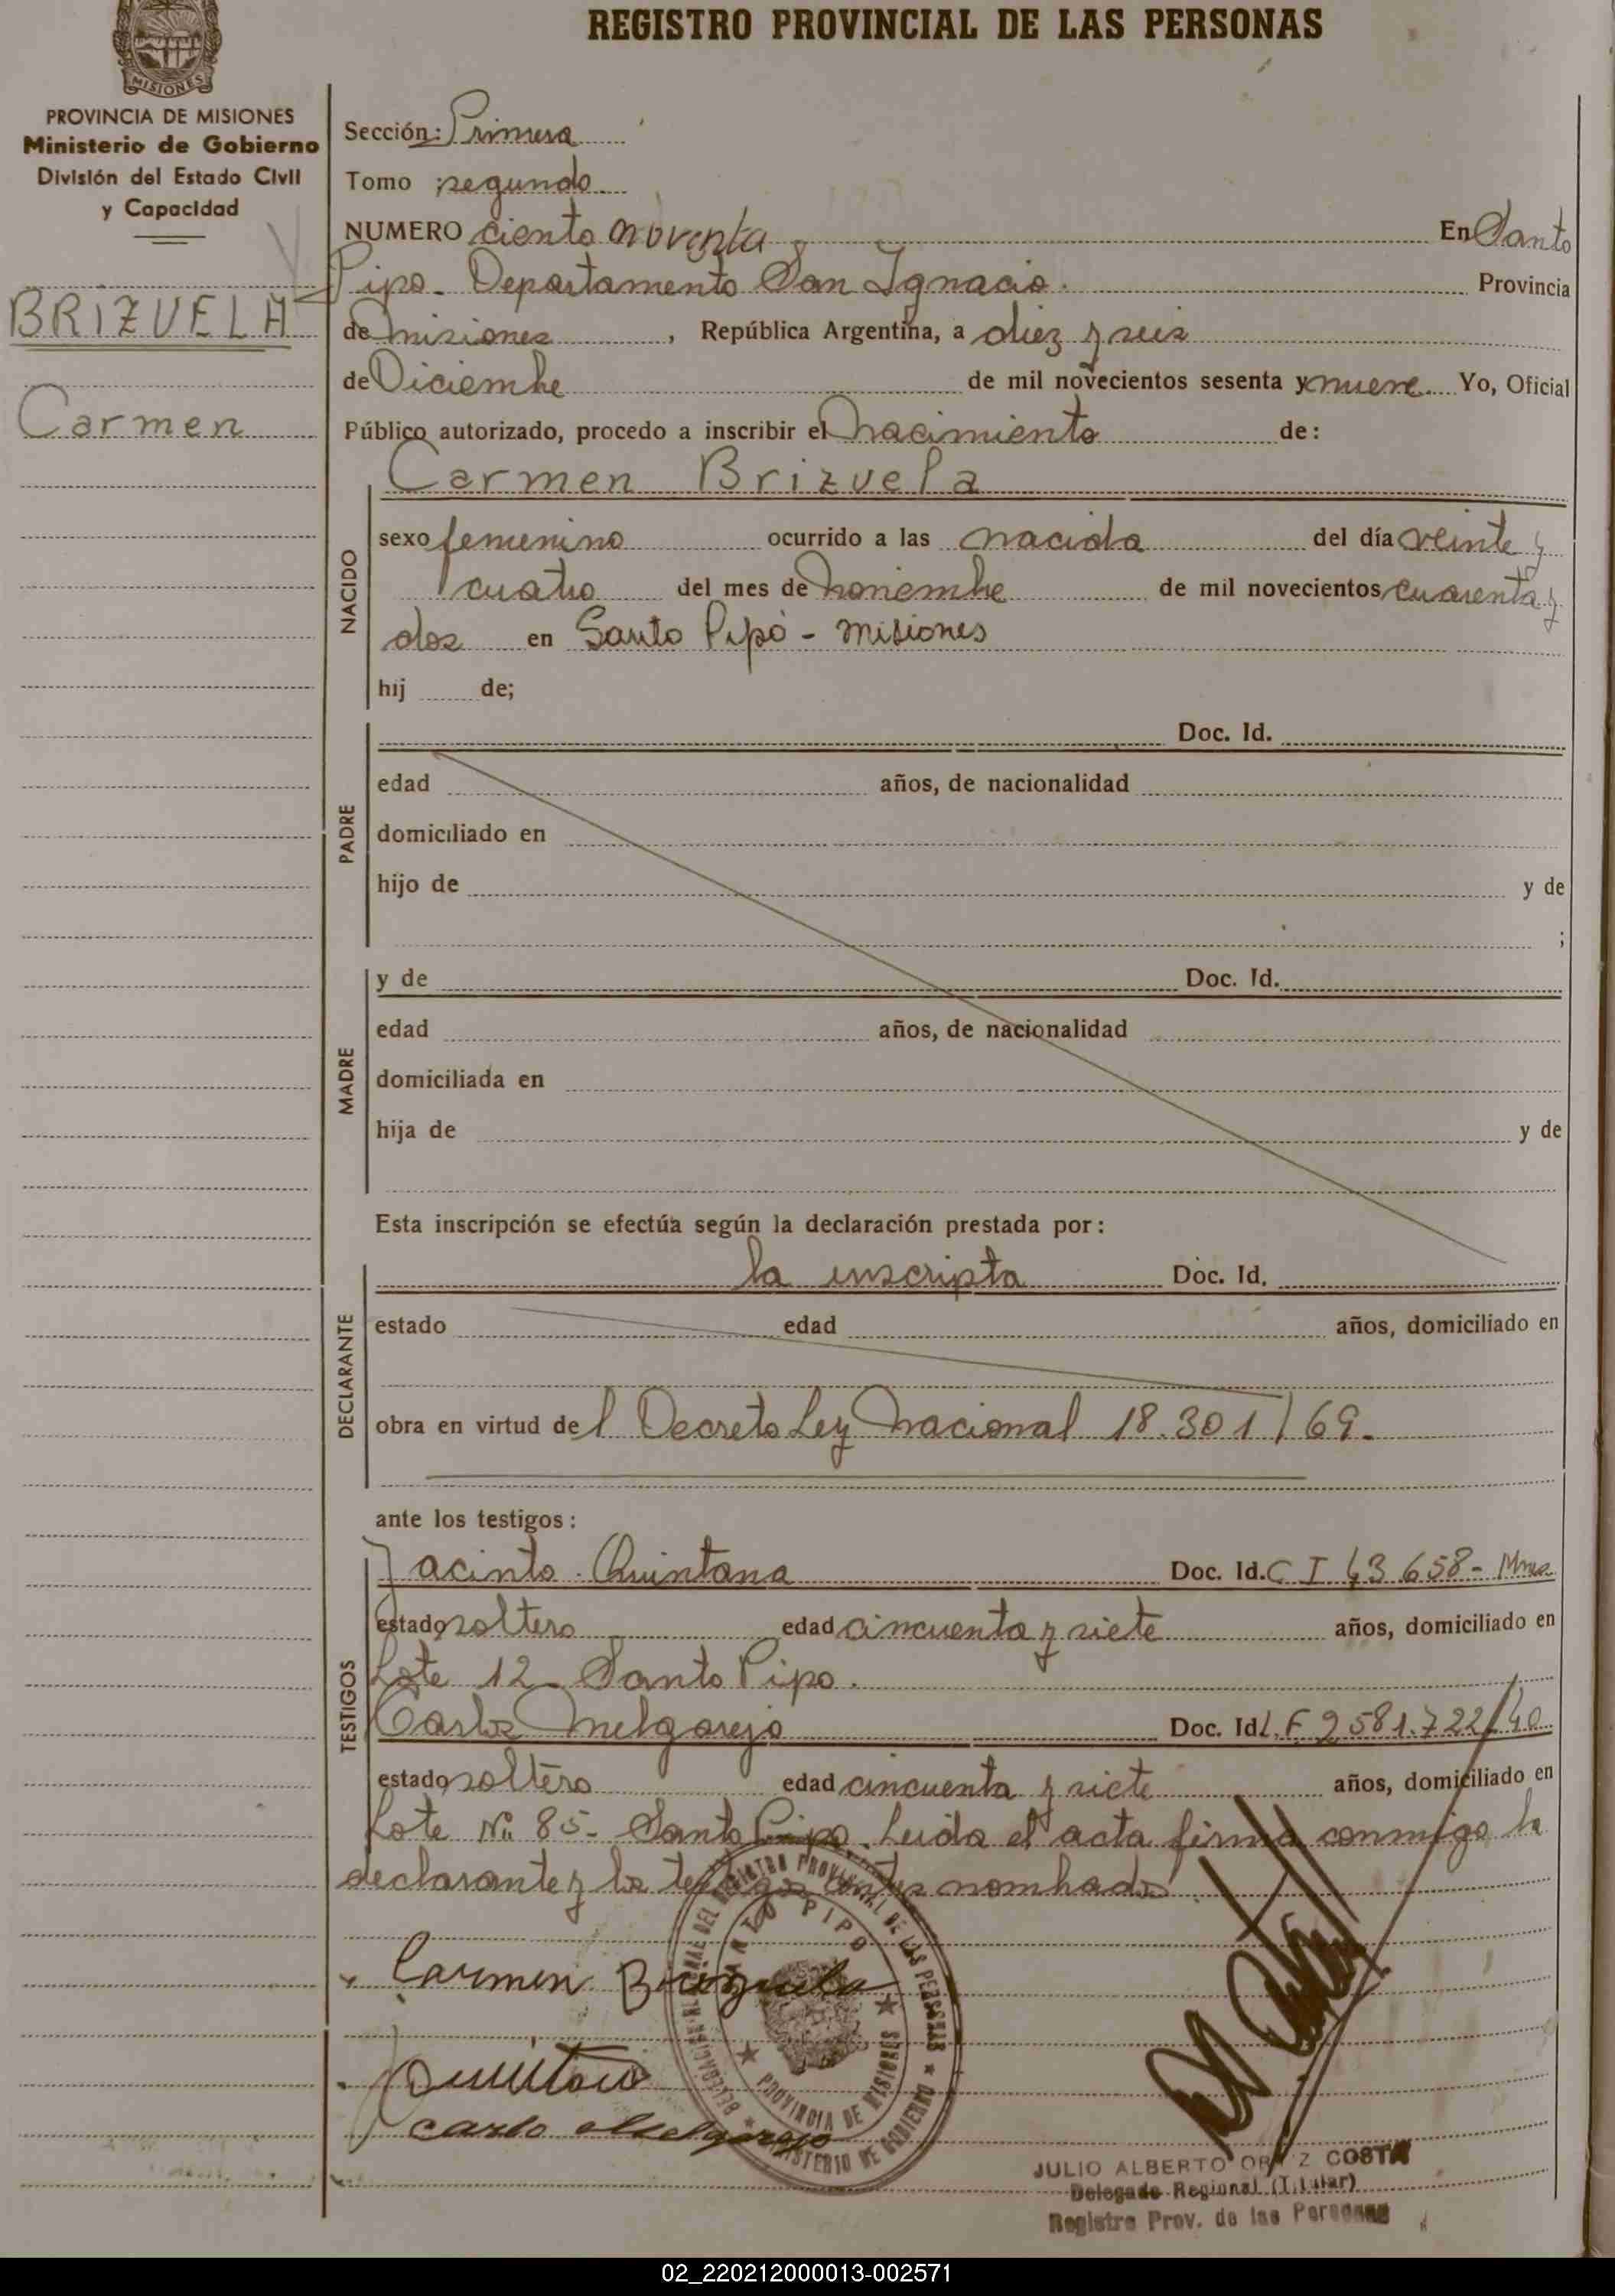 REGISTRO PROVINCIAL DE LAS PERSONAS
MISIONES
PROVINCIA DE MISIONES
Ministerio de Gobierno
División del Estado Civil
y Capacidad
BRIZUELA
Carmen
Sección: Primera
Tomo segundo
NUMERO ciento noventa En Santo
Pipo. Departamento San Ignacio. Provincia
de misiones, República Argentina, a diez y seis
de Diciembre de mil novecientos sesenta y nueve. Yo, Oficial
Público autorizado, procedo a inscribir el nacimiento de:
NACIDO
Carmen Brizuela
sexo femenino ocurrido a las nacida del día veinte y
cuatro del mes de noviembre de mil novecientos cuarenta y
dos en Santo Pipó - misiones
hij de;
PADRE
Doc. Id.
edad años, de nacionalidad
domiciliado en
hijo de y de
;
MADRE
y de Doc. Id.
edad años, de nacionalidad
domiciliada en
hija de y de
Esta inscripción se efectúa según la declaración prestada por:
DECLARANTE
la inscripta Doc. Id.
estado edad años, domiciliado en
obra en virtud del Decreto Ley Nacional 18.301/69.
ante los testigos:
TESTIGOS
Jacinto Quintana Doc. Id. C I 43 658 - Mnes
estado soltero edad cincuenta y siete años, domiciliado en
Lote 12 - Santo Pipo.
Carlos Melgarejo Doc. Id. L.F. 2581.722/40
estado soltero edad cincuenta y siete años, domiciliado en
Lote Nº 85 - Santo Pipo. Leida el acta firma conmigo la
declarante y los testigos antes nombrados
Carmen Brizuela
Quintana
Carlo Melgarejo
DELEGACION REGIONAL DEL REGISTRO PROVINCIAL DE LAS PERSONAS ★ MINISTERIO DE GOBIERNO ★
SANTO PIPO ★ PROVINCIA DE MISIONES ★
JULIO ALBERTO ORTIZ COSTA
Delegado Regional (Titular)
Registro Prov. de las Personas
02_220212000013-002571